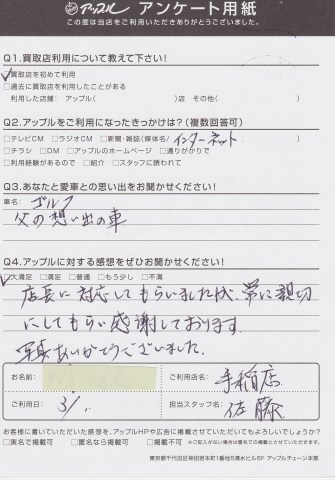 アップル アンケート用紙
この度は当店をご利用いただきありがとうございました。
Q1.買取店利用について教えて下さい!
☑買取店を初めて利用
□過去に買取店を利用したことがある
利用した店舗: アップル( )店 その他( )
Q2.アップルをご利用になったきっかけは?(複数回答可)
□テレビCM □ラジオCM □新聞・雑誌(媒体名/インターネット )
□チラシ □DM □アップルのホームページ □通りがかりで
□利用経験があるので □紹介 □スタッフに誘われて
Q3.あなたと愛車との思い出をお聞かせください!
車名: ゴルフ
父の想い出の車
Q4.アップルに対する感想をぜひお聞かせください!
☑大満足 □満足 □普通 □もう少し □不満
店長に対応してもらいましたが、常に親切
にしてもらい感謝しております。
ありがとうございました。
お名前:
ご利用店名: 手稲店
ご利用日: 3/1.
担当スタッフ名: 佐藤
お客様に書いていただいた感想を、アップルHPや広告に掲載させていただいてもよろしいでしょうか?
□実名で掲載可 □匿名なら掲載可 □掲載不可 ※ご記入がない場合は匿名で掲載させていただきます。
東京都千代田区神田岩本町1番地5清水ビル6F アップルチェーン本部